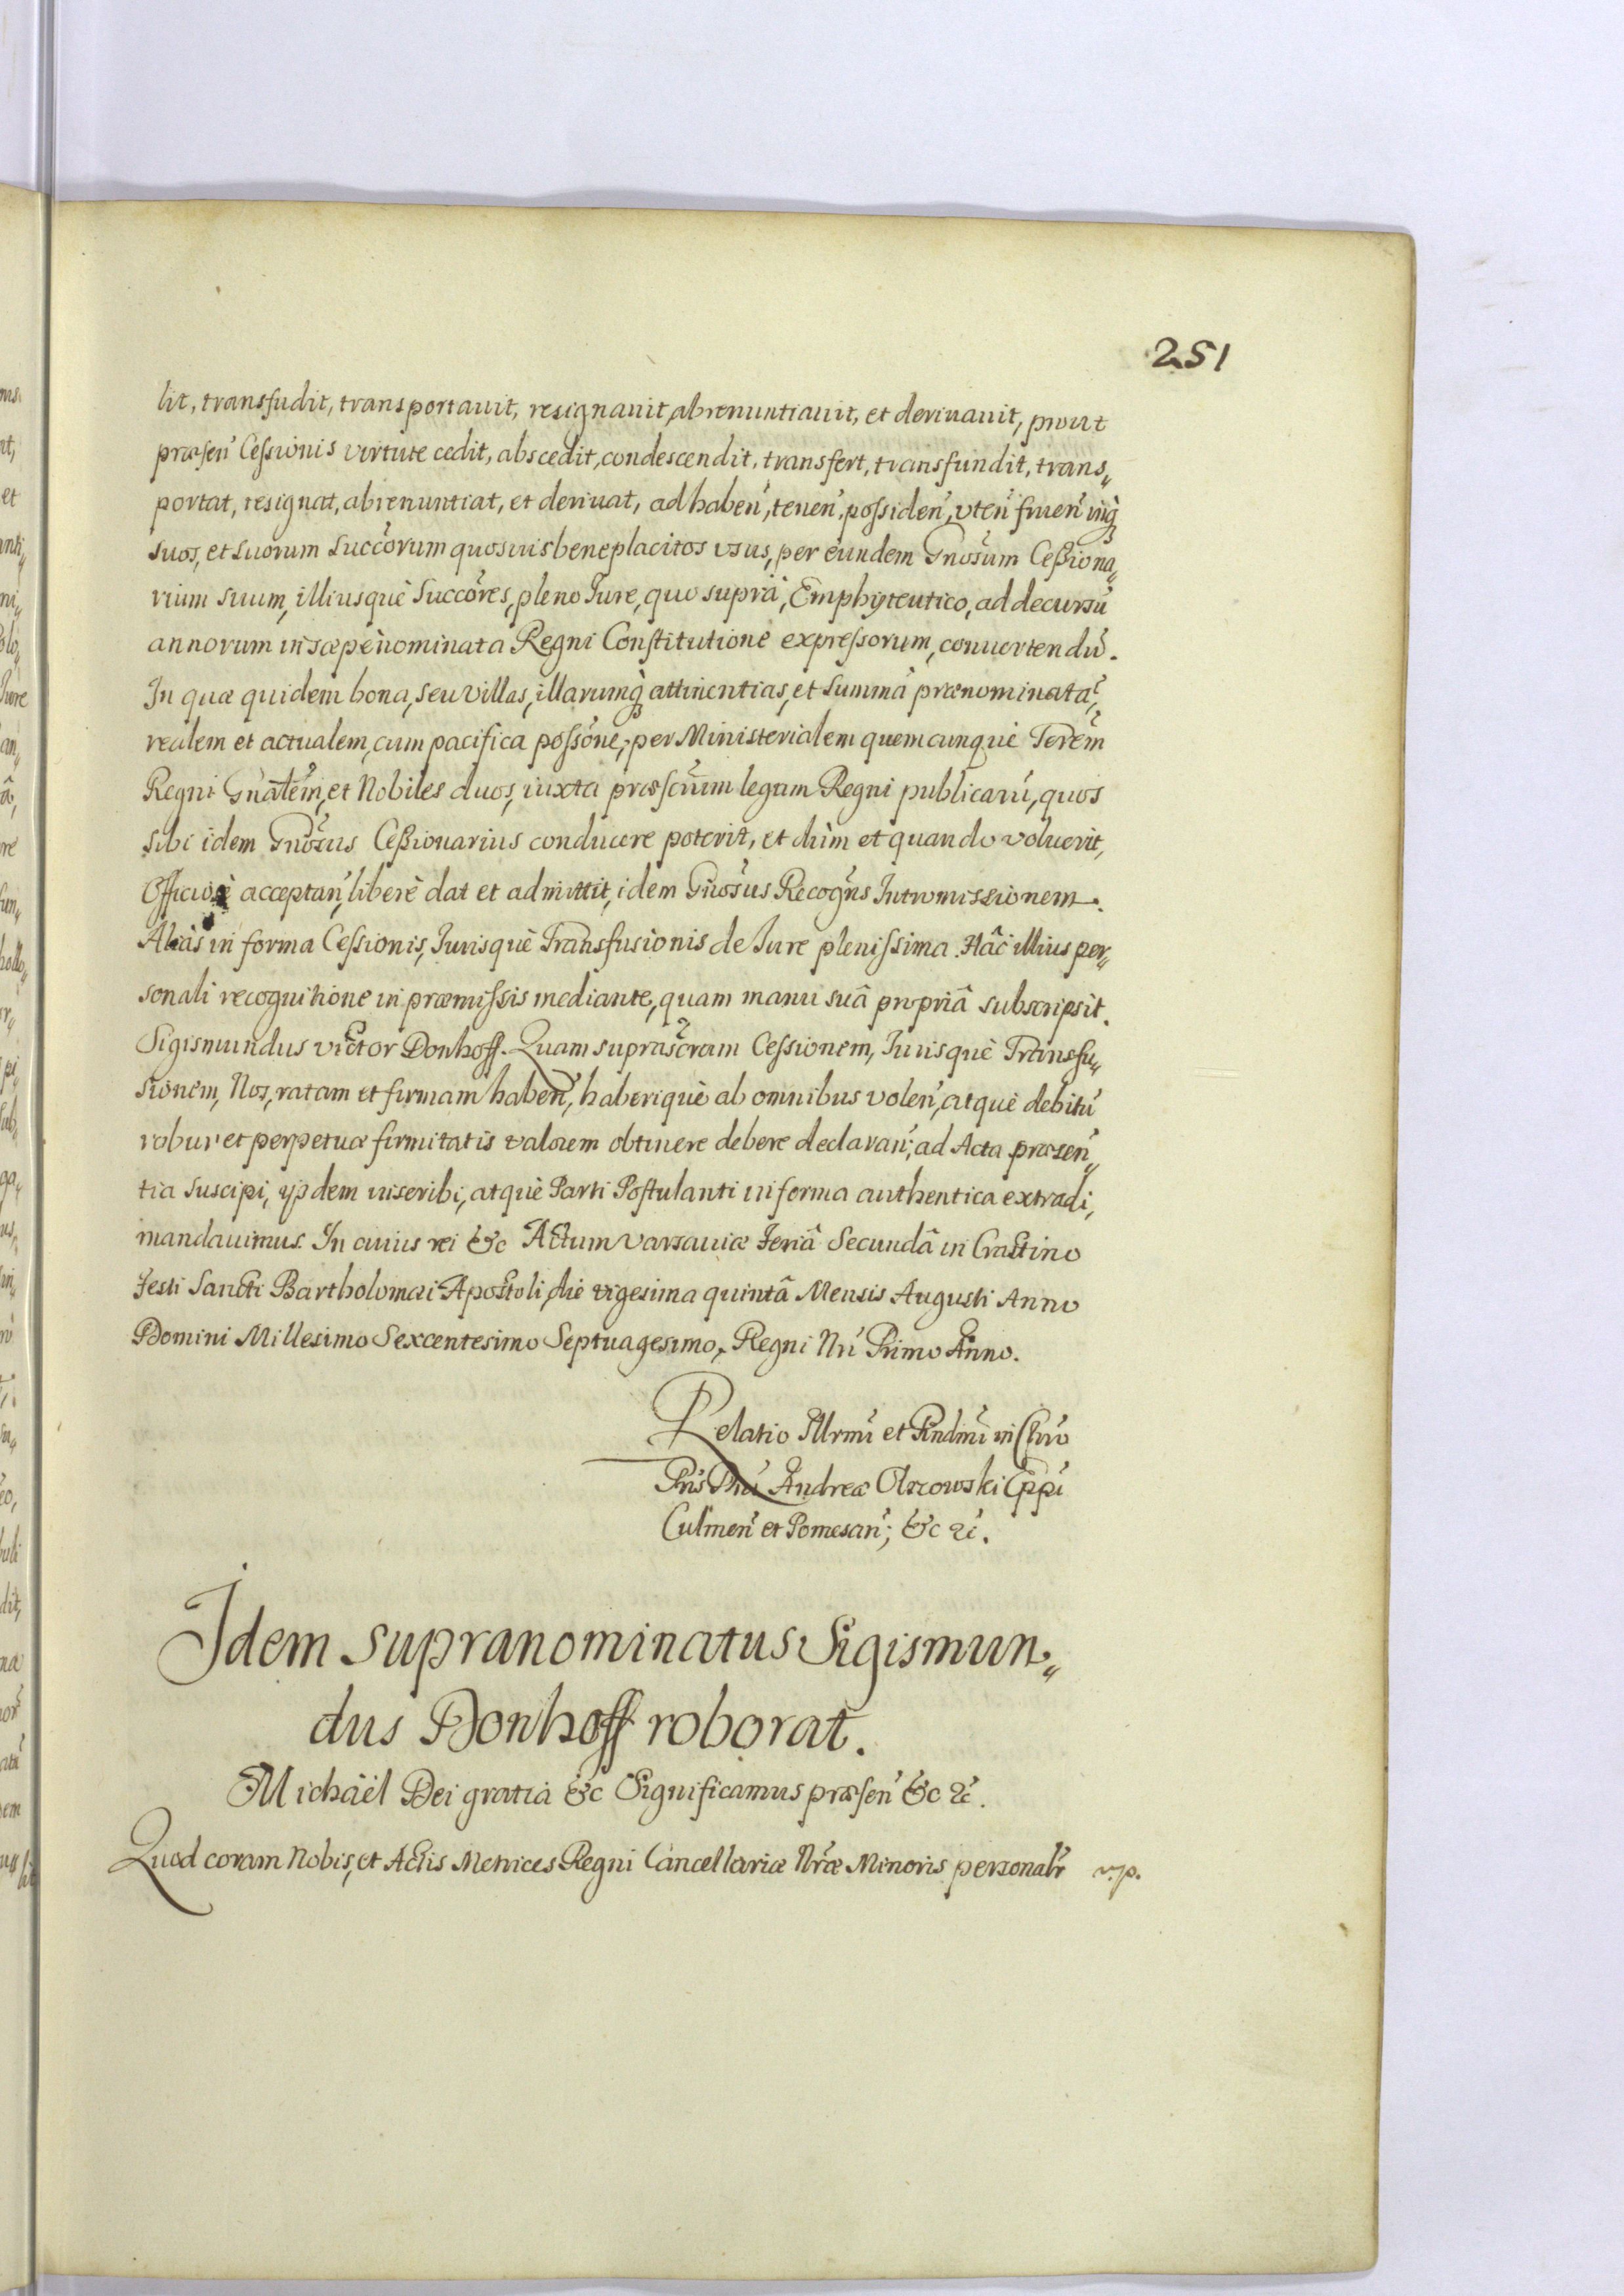 251
lit, transfudit, transportauit, resignauit, abrenuntiauit, et deriuauit, prout
præsen̄ Cessionis virtute cedit, abscedit, condescendit, transfert, transfundit, trans„
portat, resignat, abrenuntiat, et deriuat, ad haben̄, tenen̄, possiden̄, vten̄ fruen̄ inq̀
suos, et suorum Succōrum quosuis beneplacitos vsus, per eundem Gnōsum Cessiona„
rium suum, illiusquè Succōres, pleno Jure, quo suprà, Emphyteutico, ad decursū
annorum in sæpènominata Regni Constitutione expressorum, conuertendū.
In quæ quidem bona, seu villas, illarumq̀ attinentias, et Summā prænominatā,
realem et actualem, cum pacifica possōne, per Ministerialem quemcunquè Terēm
Regni Gnālem, et Nobiles duos, iuxta præscrūm legum Regni publicarū, quos
sibi idem Gnōsus Cessionarius conducere poterit, et dùm et quando voluerit,
Officiosè acceptan̄, liberè dat et admittit, idem Gnōsus Recogn̄s Intromissionem.
Aliàs in forma Cessionis, Jurisquè Transfusionis de Jure plenissima. Hâc illius per„
sonali recognitione in præmissis mediante, quam manu suâ propriâ subscripsit.
Sigismundus victor Donhoff. Quam suprascr̄am Cessionem, Jurisquè Transfu„
sionem, Nos, ratam et firmam haben̄, haberiquè ab omnibus volen̄, atquè debitū
robur et perpetuæ firmitatis valorem obtinere debere declaran̄, ad Acta præsen„
tia suscipi, ijsdem inscribi, atquè Parti Postulanti in forma authentica extradi,
mandauimus. In cuius rei &c Actum Varsauiæ Feriâ Secundâ in Crastino
Festi Sancti Bartholomæi Apostoli, die vigesima quintâ Mensis Augusti Anno
Domini Millesimo Sexcentesimo Septuagesimo, Regni Nrī Primo Anno.
Relatio Illrm̄i et Rndm̄i in Chrō
Pris Dnī Andreæ Olszowski Epp̄i
Culmen̄ et Pomesan̄; &c &c.
Idem supranominatus Sigismun„
dus Donhoff roborat.
Michäël Dei gratia &c Significamus præsen̄ &c &c.
Quod coram Nobis, et Actis Metrices Regni Cancellariæ Nrǣ Minoris personalr̄